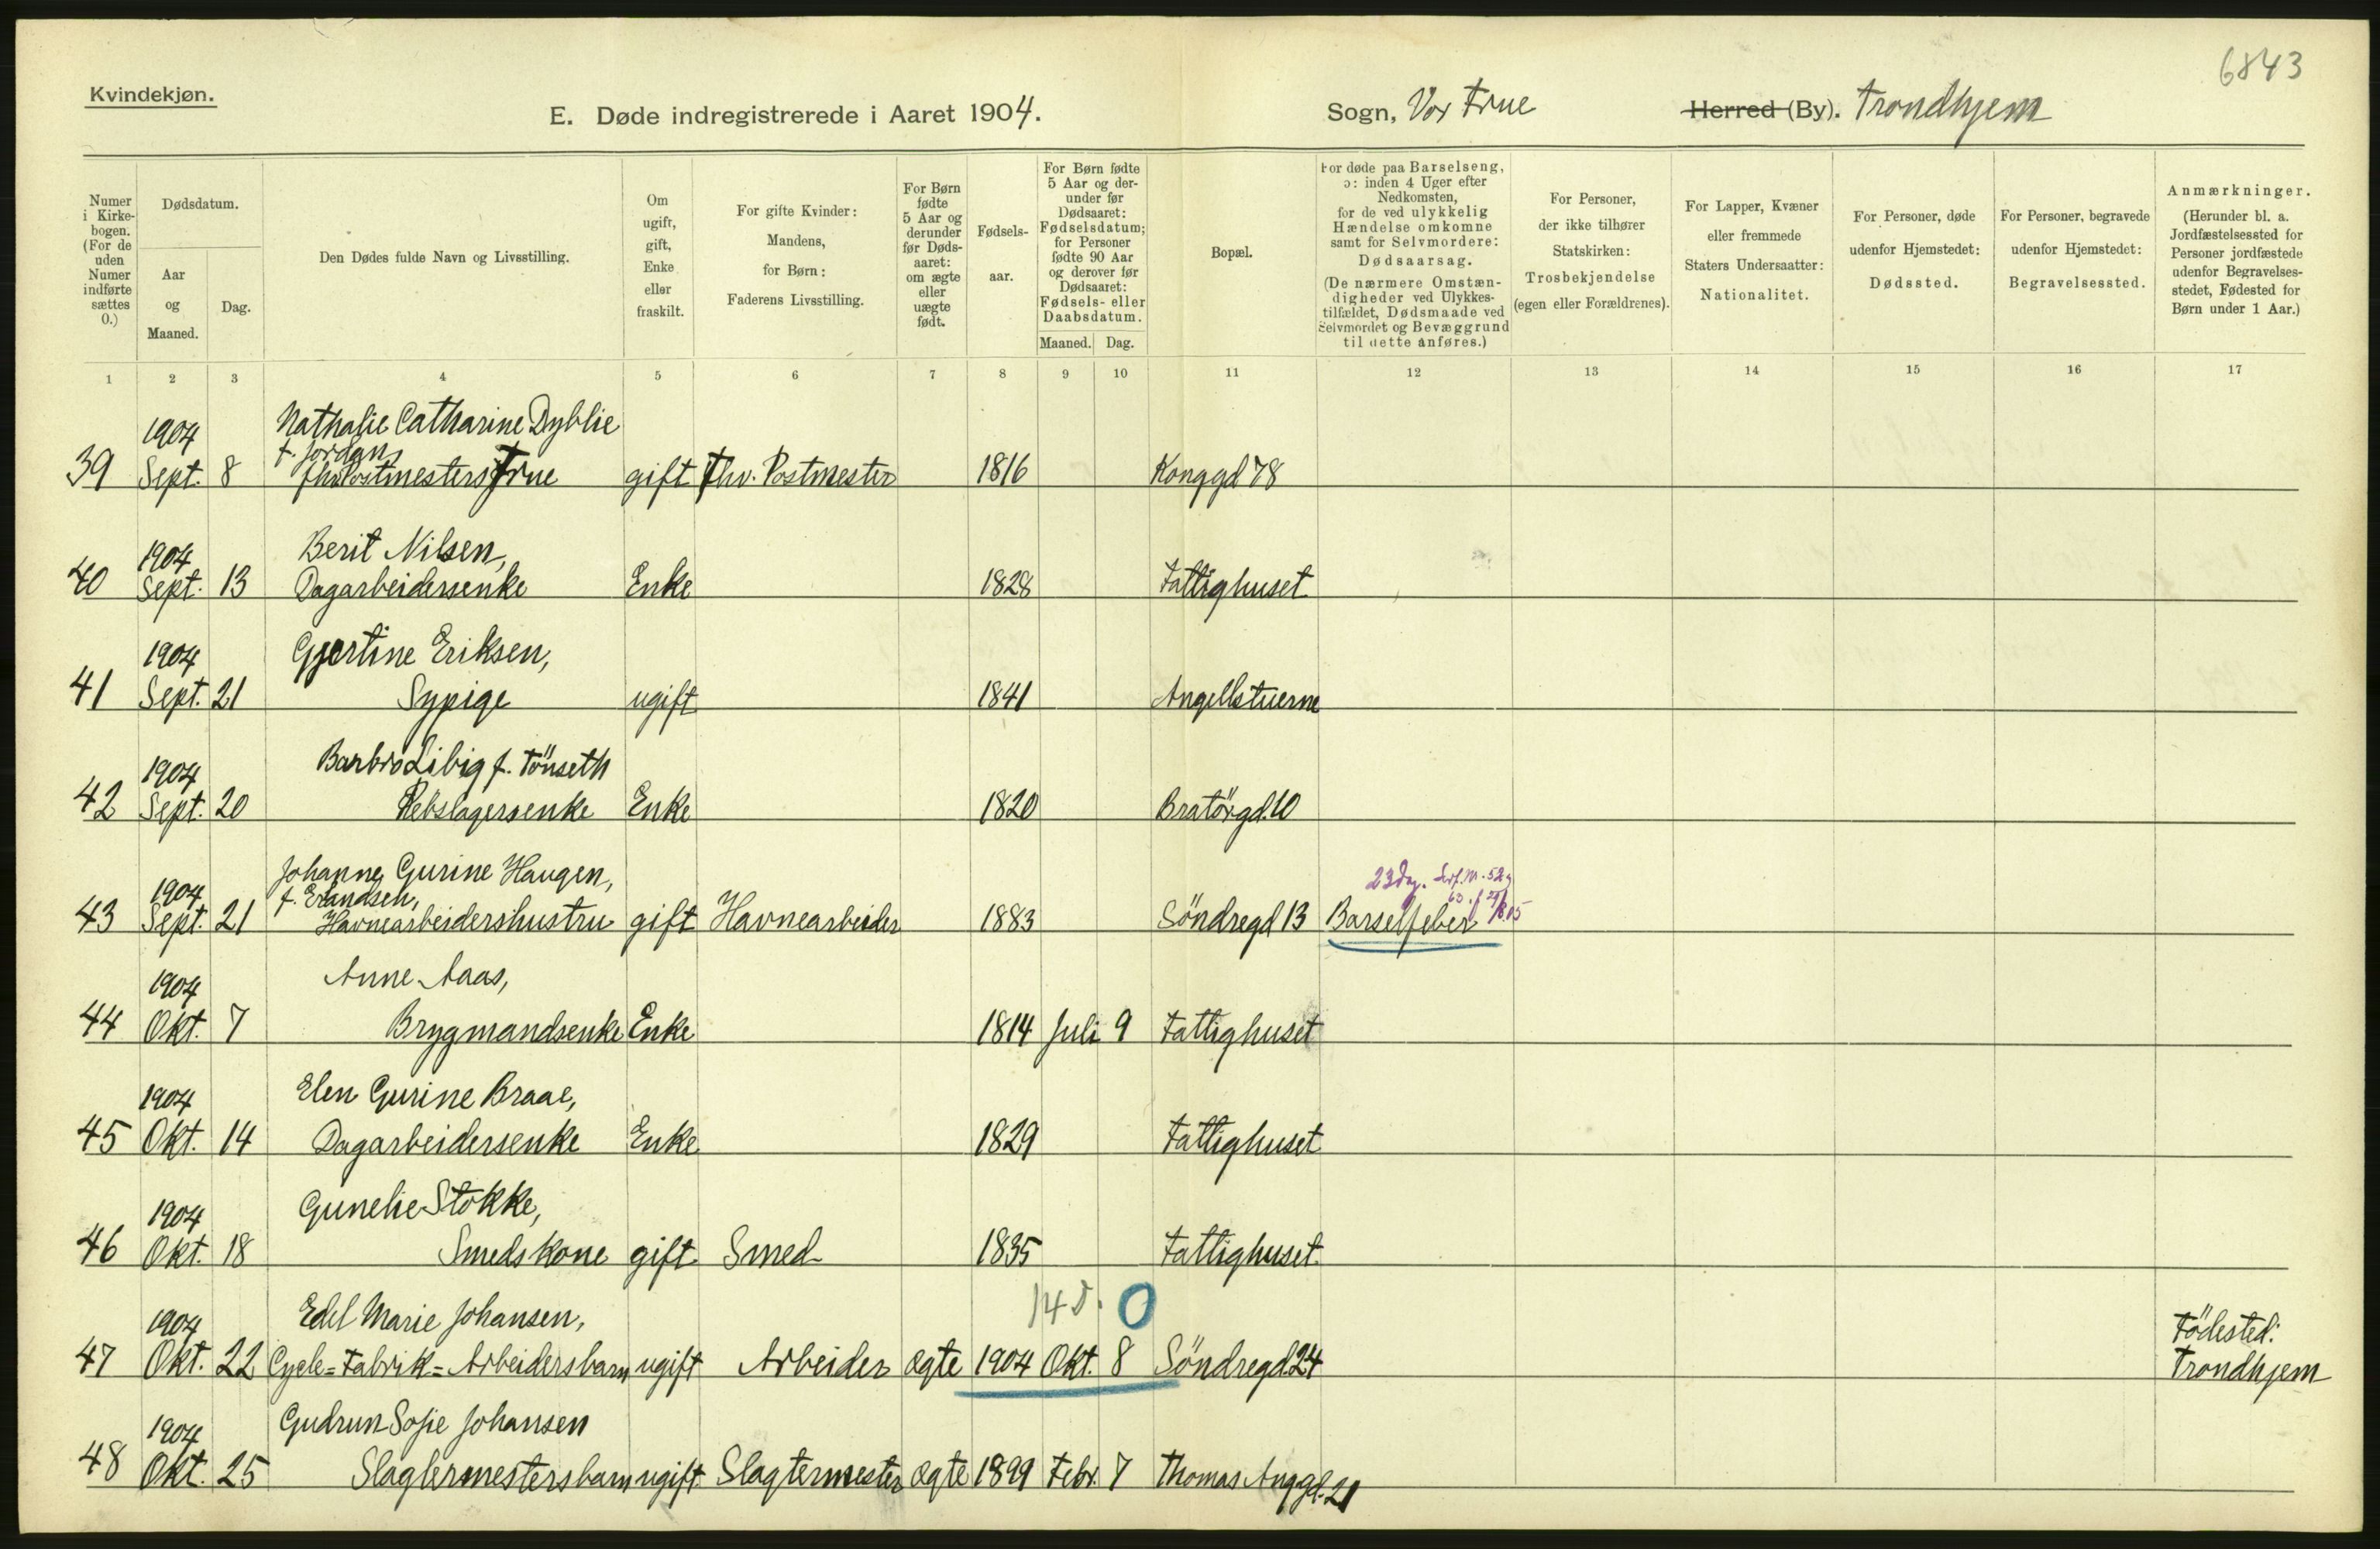 6843
Kvindekjøn.
E. Døde indregistrerede i Aaret 1904.
Sogn, Vor Frue
Herred (By). Trondhjem
Numer i Kirkebogen. (For de uden Numer indførte sættes 0.)
Dødsdatum.
Aar og Maaned.
Dag.
Den Dødes fulde Navn og Livsstilling.
Om ugift, gift, Enke eller fraskilt.
For gifte Kvinder: Mandens, for Børn: Faderens Livsstilling.
For Børn fødte 5 Aar og derunder før Dødsaaret: om ægte eller uægte født.
Fødselsaar.
For Børn fødte 5 Aar og derunder før Dødsaaret: Fødselsdatum; for Personer fødte 90 Aar og derover før Dødsaaret: Fødsels- eller Daabsdatum.
Maaned. Dag.
Bopæl.
For døde paa Barselseng, ɔ: inden 4 Uger efter Nedkomsten, for de ved ulykkelig Hændelse omkomne samt for Selvmordere: Dødsaarsag.
(De nærmere Omstændigheder ved Ulykkestilfældet, Dødsmaade ved Selvmordet og Bevæggrund til dette anføres.)
For Personer, der ikke tilhører Statskirken: Trosbekjendelse (egen eller Forældrenes).
For Lapper, Kvæner eller fremmede Staters Undersaatter: Nationalitet.
For Personer, døde udenfor Hjemstedet: Dødssted.
For Personer, begravede udenfor Hjemstedet: Begravelsessted.
Anmærkninger. (Herunder bl. a. Jordfæstelsessted for Personer jordfæstede udenfor Begravelsesstedet, Fødested for Børn under 1 Aar.)
1 2 3 4 5 6 7 8 9 10 11 12 13 14 15 16 17
1904 Nathalie Catharine Dyblie
f. Jordan,
39 Sept. 8 fhv. Postmesters Frue gift fhv. Postmester 1816 Konggd 78
1904 Berit Nilsen,
40 Sept. 13 Dagarbeidersenke Enke 1828 Fattighuset
1904 Gjertine Eriksen,
41 Sept. 21 Sypige ugift 1841 Angellstuerne
1904 Barbro Libig f. Tönseth
42 Sept. 20 Rebslagersenke Enke 1820 Bratörgd. 10
Johanne Gurine Haugen,
1904 f. Erlandsen, 23 Dag.
43 Sept. 21 Havnearbeidershustru gift Havnearbeider 1883 Söndregd 13 Barselfeber
1904 Anne Aaas,
44 Okt. 7 Brygmandsenke Enke 1814 Juli 9 Fattighuset
1904 Elen Gurine Braae,
45 Okt. 14 Dagarbeidersenke Enke 1829 Fattighuset
1904 Gunelie Stokke,
46 Okt. 18 Smedskone gift Smed 1835 Fattighuset
14 D. 0
1904 Edel Marie Johansen, Födested:
47 Okt. 22 Cycle=Fabrik=Arbeidersbarn ugift Arbeider ægte 1904 Okt. 8 Söndregd. 24 Trondhjem
1904 Gudrun Sofie Johansen
48 Okt. 25 Slagtermestersbarn ugift Slagtermester ægte 1899 Febr. 7 Thomas Anggd. 21